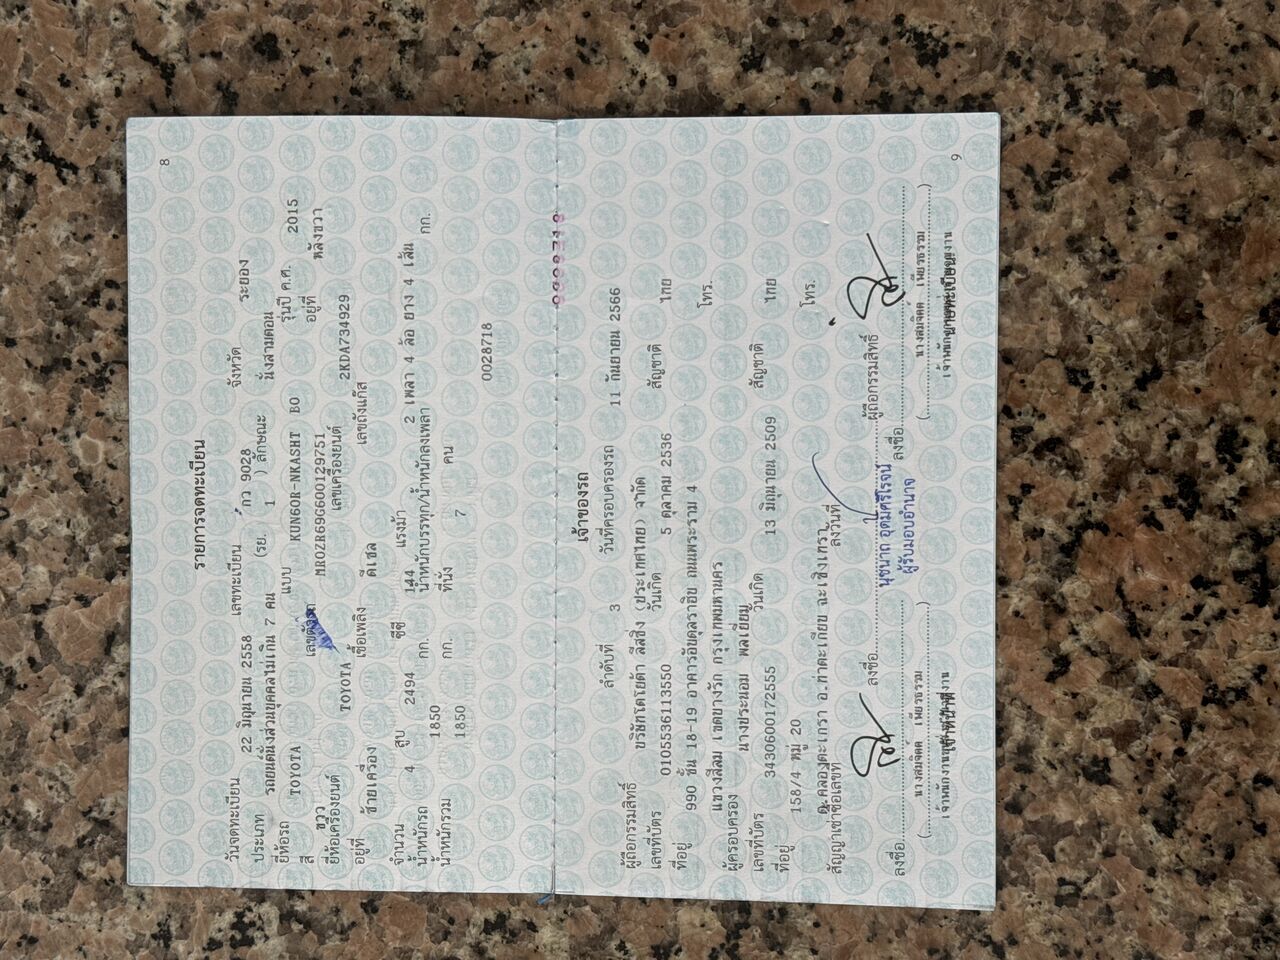 8
รายการจดทะเบียน
วันจดทะเบียน 22 มิถุนายน 2558 เลขทะเบียน กว 9028 จังหวัด ระยอง
ประเภท รถยนต์นั่งส่วนบุคคลไม่เกิน 7 คน (รย. 1 ) ลักษณะ นั่งสามตอน
ยี่ห้อรถ TOYOTA แบบ KUN60R-NKASHT BO รุ่นปี ค.ศ. 2015
สี ขาว เลขตัวรถ MR0ZR69G600129751 อยู่ที่ หลังขวา
ยี่ห้อเครื่องยนต์ TOYOTA เลขเครื่องยนต์ 2KDA734929
อยู่ที่ ซ้ายเครื่อง เชื้อเพลิง ดีเซล เลขถังแก๊ส
จำนวน 4 สูบ 2494 ซีซี 144 แรงม้า 2 เพลา 4 ล้อ ยาง 4 เส้น
น้ำหนักรถ 1850 กก. น้ำหนักบรรทุก/น้ำหนักลงเพลา กก.
น้ำหนักรวม 1850 กก. ที่นั่ง 7 คน
0028718
เจ้าของรถ
ลำดับที่ 3 วันที่ครอบครองรถ 11 กันยายน 2566
ผู้ถือกรรมสิทธิ์ บริษัทโตโยต้า ลีสซิ่ง (ประเทศไทย) จำกัด
เลขที่บัตร 0105536113550 วันเกิด 5 ตุลาคม 2536 สัญชาติ ไทย
ที่อยู่ 990 ชั้น 18-19 อาคารอับดุลราฮิม ถนนพระราม 4
แขวงสีลม เขตบางรัก กรุงเทพมหานคร โทร.
ผู้ครอบครอง นางประนอม พลเยี่ยม
เลขที่บัตร 3430600172555 วันเกิด 13 มิถุนายน 2509 สัญชาติ ไทย
ที่อยู่ 158/4 หมู่ 20
ต.คลองตะเกรา อ.ท่าตะเกียบ ฉะเชิงเทรา โทร.
สัญญาเช่าซื้อเลขที่ ลงวันที่
ลงชื่อ ผู้ถือกรรมสิทธิ์
นุชนาถ อุดมศรีโรจน์
ผู้รับมอบอำนาจ
ลงชื่อ ลงชื่อ
( นางสมจิตต์ เพียวธรรม ) ( นางสมจิตต์ เพียวธรรม )
9